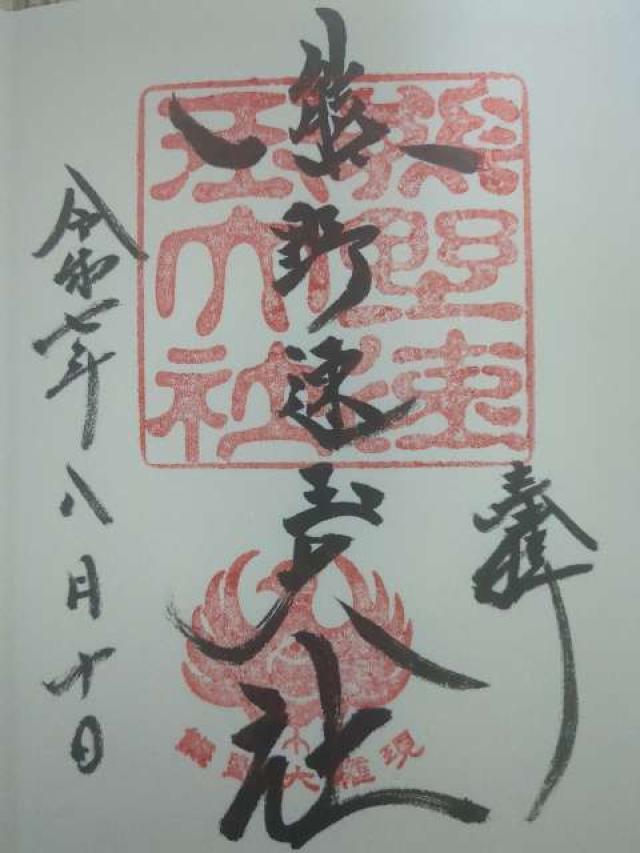 奉拝
熊野速玉大社
令和七年八月十日
熊野速玉大社
熊野大権現